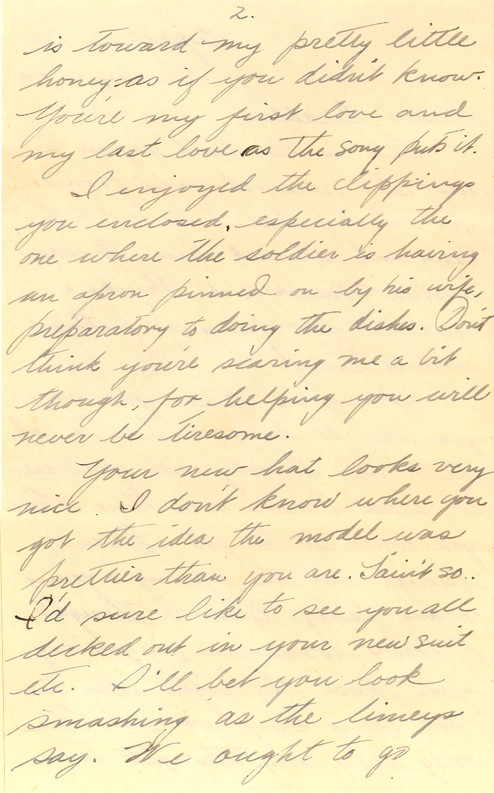 2.
is toward my pretty little
honey-as if you didn't know.
You're my first love and
my last love as the song puts it.
I enjoyed the clippings
you enclosed, especially the
one where the soldier is having
an apron pinned on by his wife,
preparatory to doing the dishes. Don't
think you're scaring me a bit
though, for helping you will
never be tiresome.
Your new hat looks very
nice. I don't know where you
got the idea the model was
prettier than you are. Tain't so..
I'd sure like to see you all
decked out in your new suit
etc. I'll bet you look
smashing as the limeys
say. We ought to go